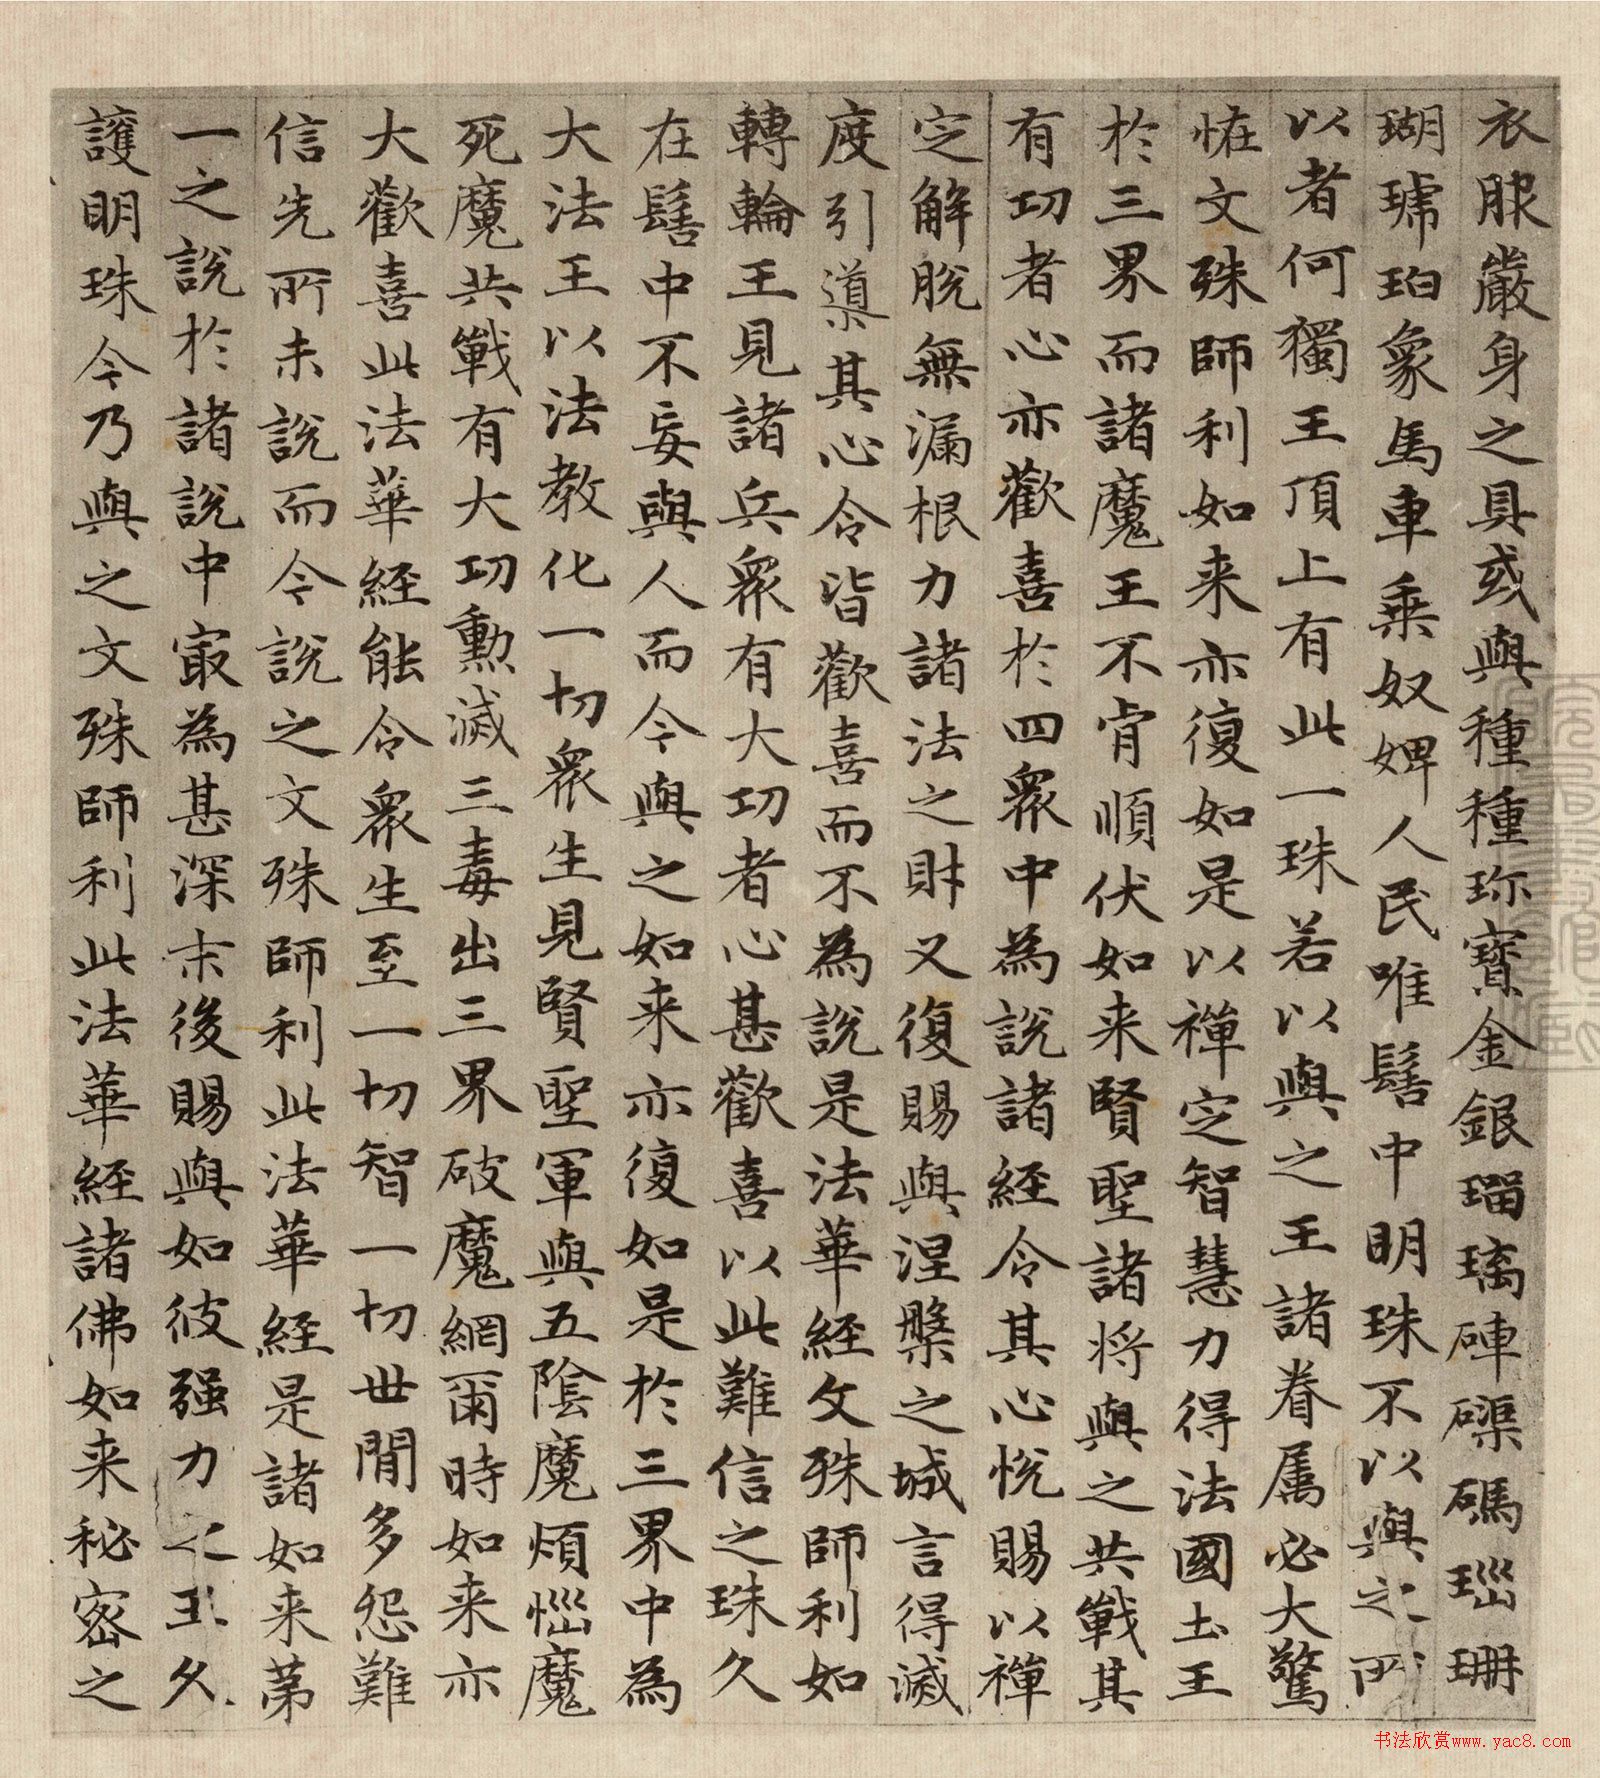 衣服嚴身之具或與種種珎寶金銀瑠璃硨磲碼瑙珊
瑚琥珀象馬車乗奴婢人民唯髻中明珠不以與之所
以者何獨王頂上有此一珠若以與之王諸眷属必大驚
恠文殊師利如来亦復如是以禪定智慧力得法國土王
於三界而諸魔王不肯順伏如来賢聖諸将與之共戰其
有功者心亦歡喜於四衆中為說諸経令其心悅賜以禪
定解脫無漏根力諸法之財又復賜與涅槃之城言得滅
度引導其心令皆歡喜而不為說是法華経文殊師利如
轉輪王見諸兵衆有大功者心甚歡喜以此難信之珠久
在髻中不妄與人而今與之如来亦復如是於三界中為
大法王以法教化一切衆生見賢聖軍與五陰魔煩惱魔
死魔共戰有大功勳滅三毒出三界破魔網爾時如来亦
大歡喜此法華経能令衆生至一切智一切世間多怨難
信先所未說而今說之文殊師利此法華経是諸如来第
一之說於諸說中冣為甚深末後賜與如彼强力之王久
護明珠今乃與之文殊師利此法華経諸佛如来秘密之
书法欣赏www.yac8.com